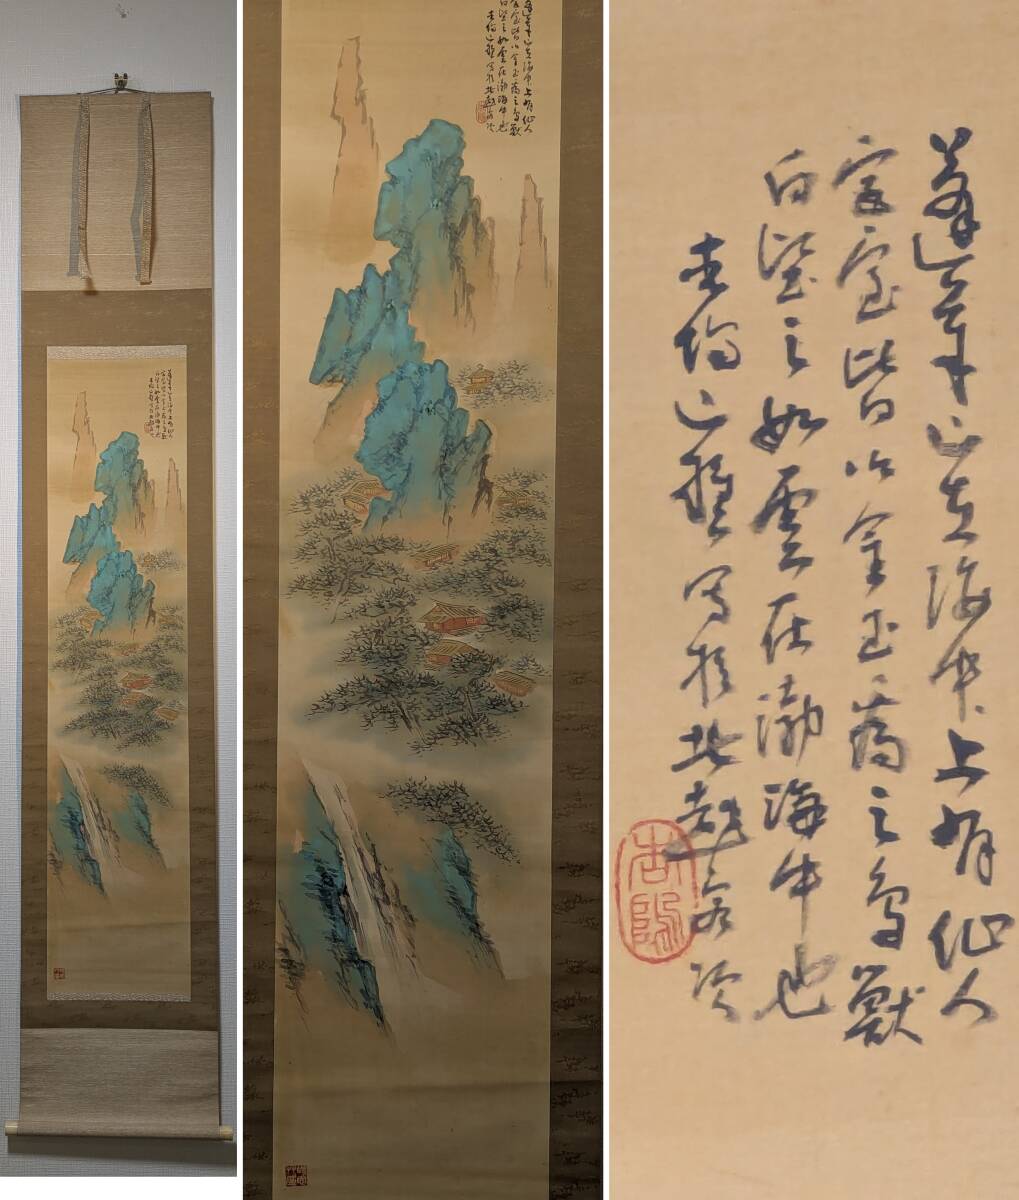 蓬莱山在海中上有仙人
宮室皆以金玉為之鳥獸
白望之如雲在渤海中也
山樵寫於北越客次